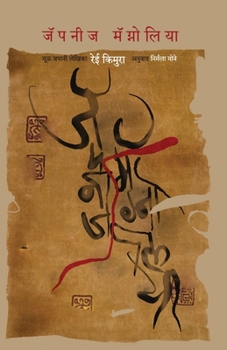 जॅपनीज मॅग्नोलिया
मूळ जपानी लेखिका रेई किमुरा अनुवाद निर्मला मोने
जपनीज
मॅग्नोलिया